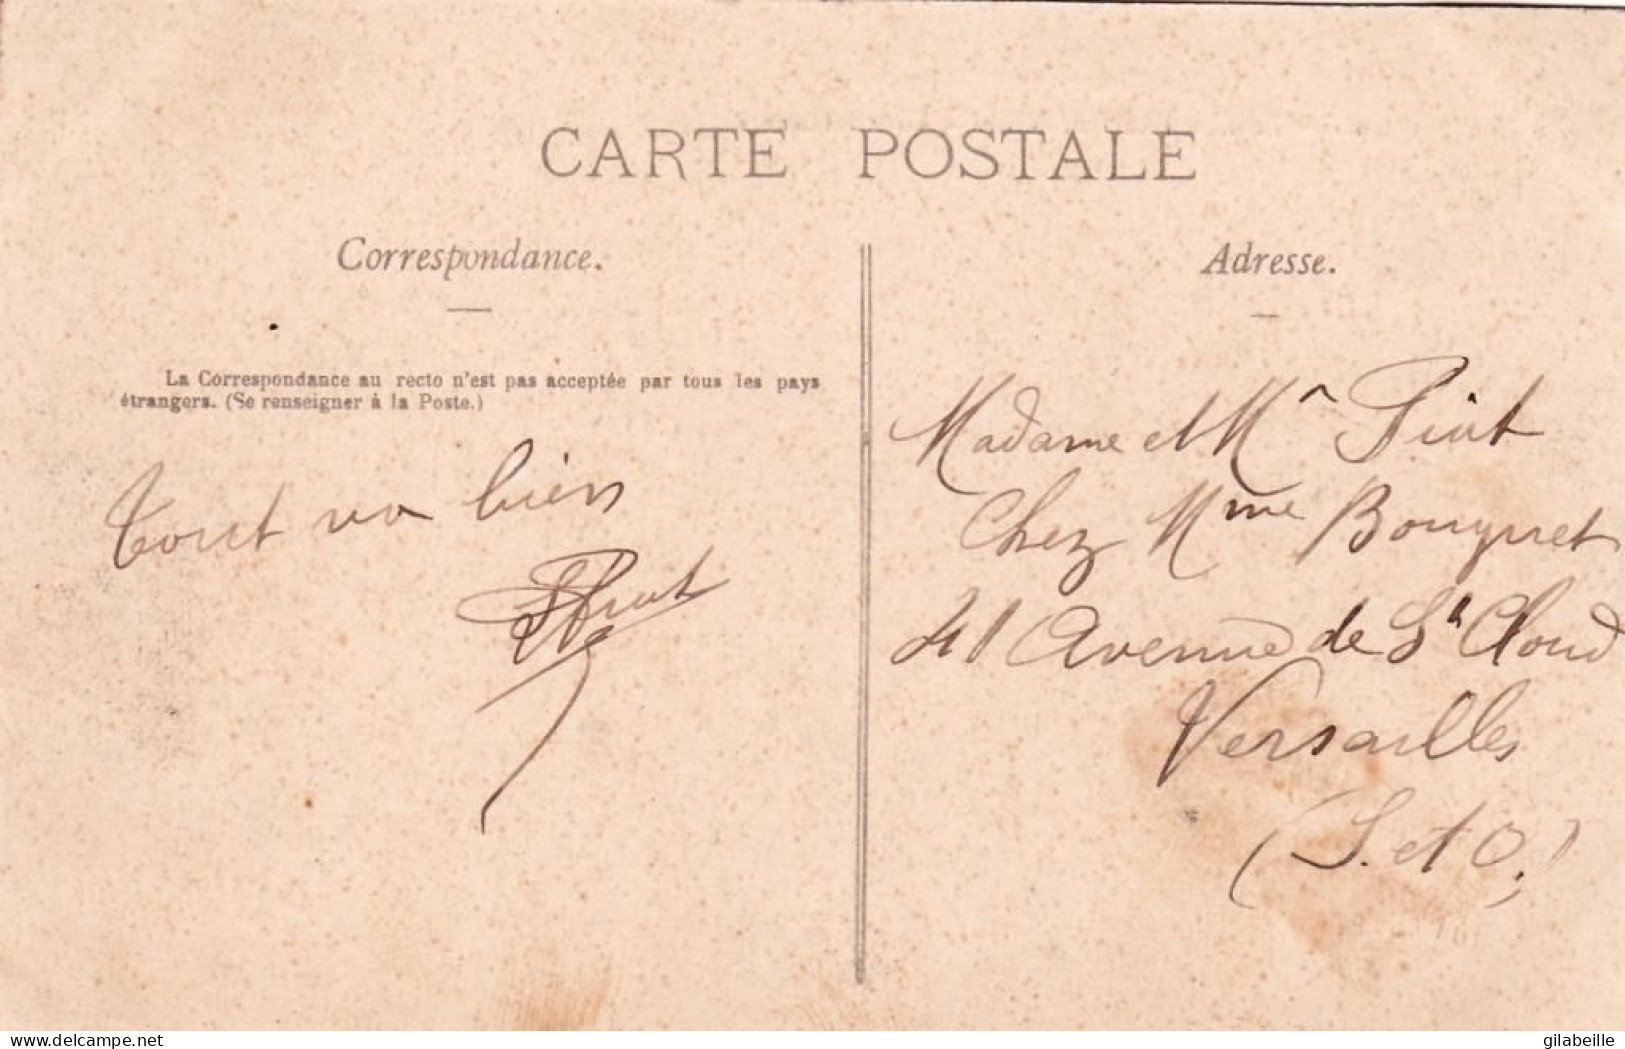 CARTE POSTALE
Correspondance.
La Correspondance au recto n'est pas acceptée par tous les pays
étrangers. (Se renseigner à la Poste.)
Tout va bien
Adresse.
Madame et Mr Piot
Chez Mme Bouquet
41 Avenue de St Cloud
Versailles
(S. et O.)
www.delcampe.net
gilabeille